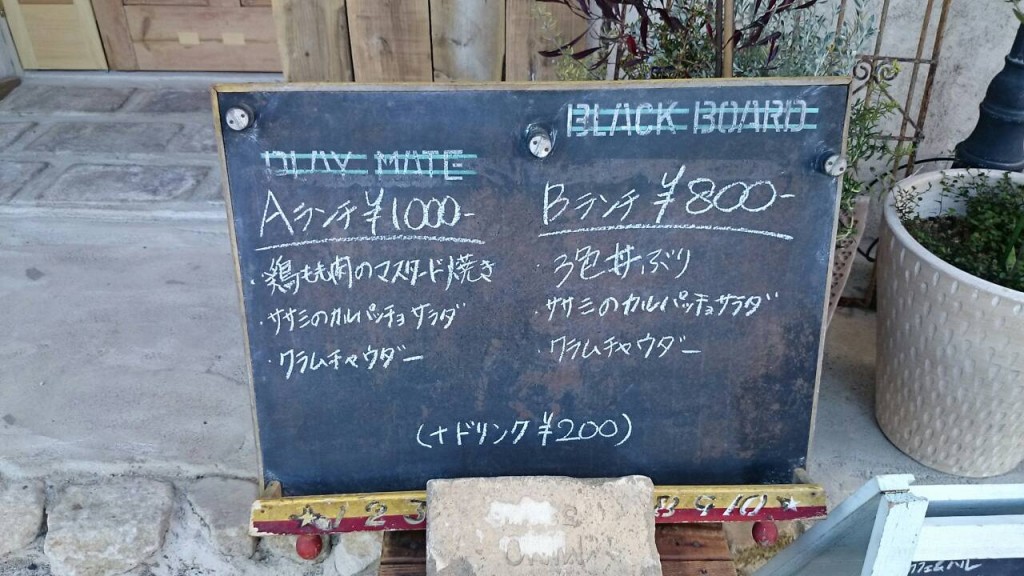 BLACK BOARD
PLAY MATE
Aランチ ¥1000-
・鶏もも肉のマスタード焼き
・ササミのカルパッチョサラダ
・クラムチャウダー
Bランチ ¥800-
・3色丼ぶり
・ササミのカルパッチョサラダ
・クラムチャウダー
(+ドリンク ¥200)
★123
8910★